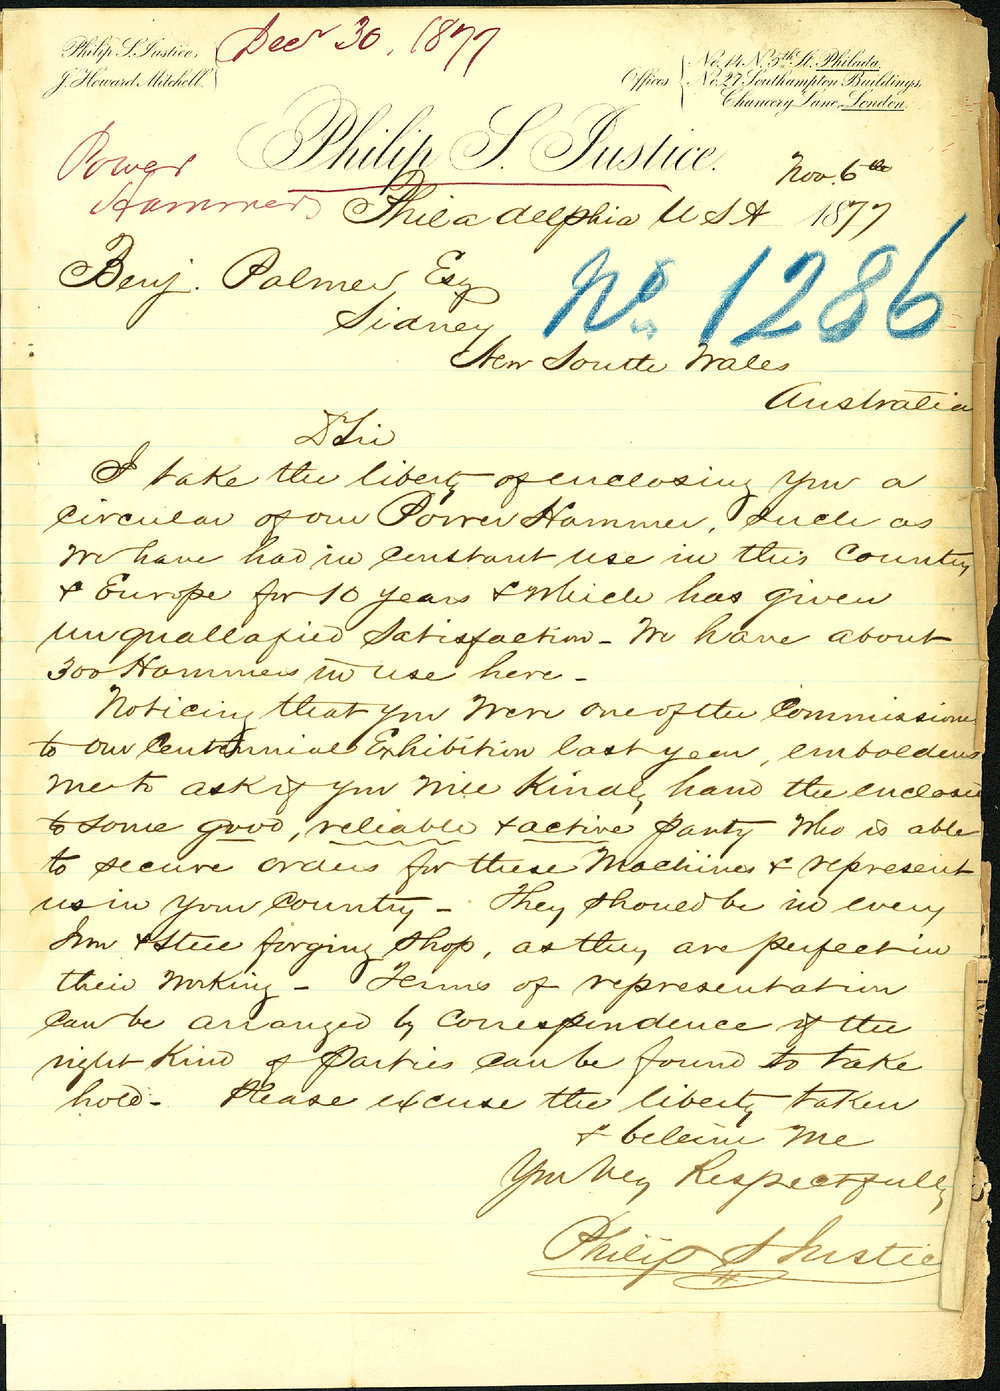 Philip S. Justice,
J. Howard Mitchell.
Decr 30, 1877
Offices
No. 14 N. 5th St. Philada.
No. 27 Southampton Buildings,
Chancery Lane, London.
Power
Hammer
Philip S. Justice.
Nov. 6th
Philadelphia U S A 1877
Benj. Palmer Esq
Sidney
New South Wales
Australia
No. 1286
D Sir
I take the liberty of enclosing you a
circular of our Power Hammer, such as
We have had in constant use in this country
& Europe for 10 years & which has given
unquallafied satisfaction - We have about
300 Hammers in use here -
Noticing that you were one of the Commissione
to our Centennial Exhibition last year, emboldens
me to ask if you will kindly hand the enclose
to some good, reliable & active party who is able
to secure orders for these Machines & represent
us in your country - They should be in every
Iron & steel forging shop, as they are perfect in
their working - Terms of representation
can be arranged by correspondence if the
right kind of Parties can be found to take
hold - Please excuse the liberty taken
& beleive me
Your Very Respectfully
Philip S Justice